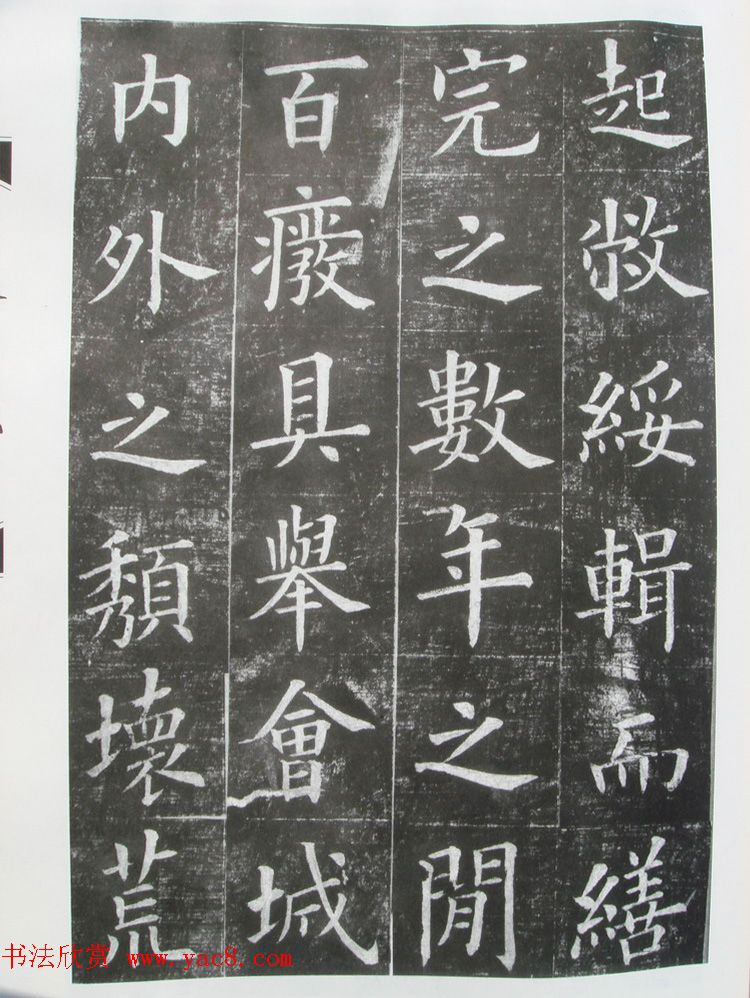 起敝綏輯而繕
完之數年之閒
百癈具舉會城
内外之頽壞荒
书法欣赏 www.yac8.com